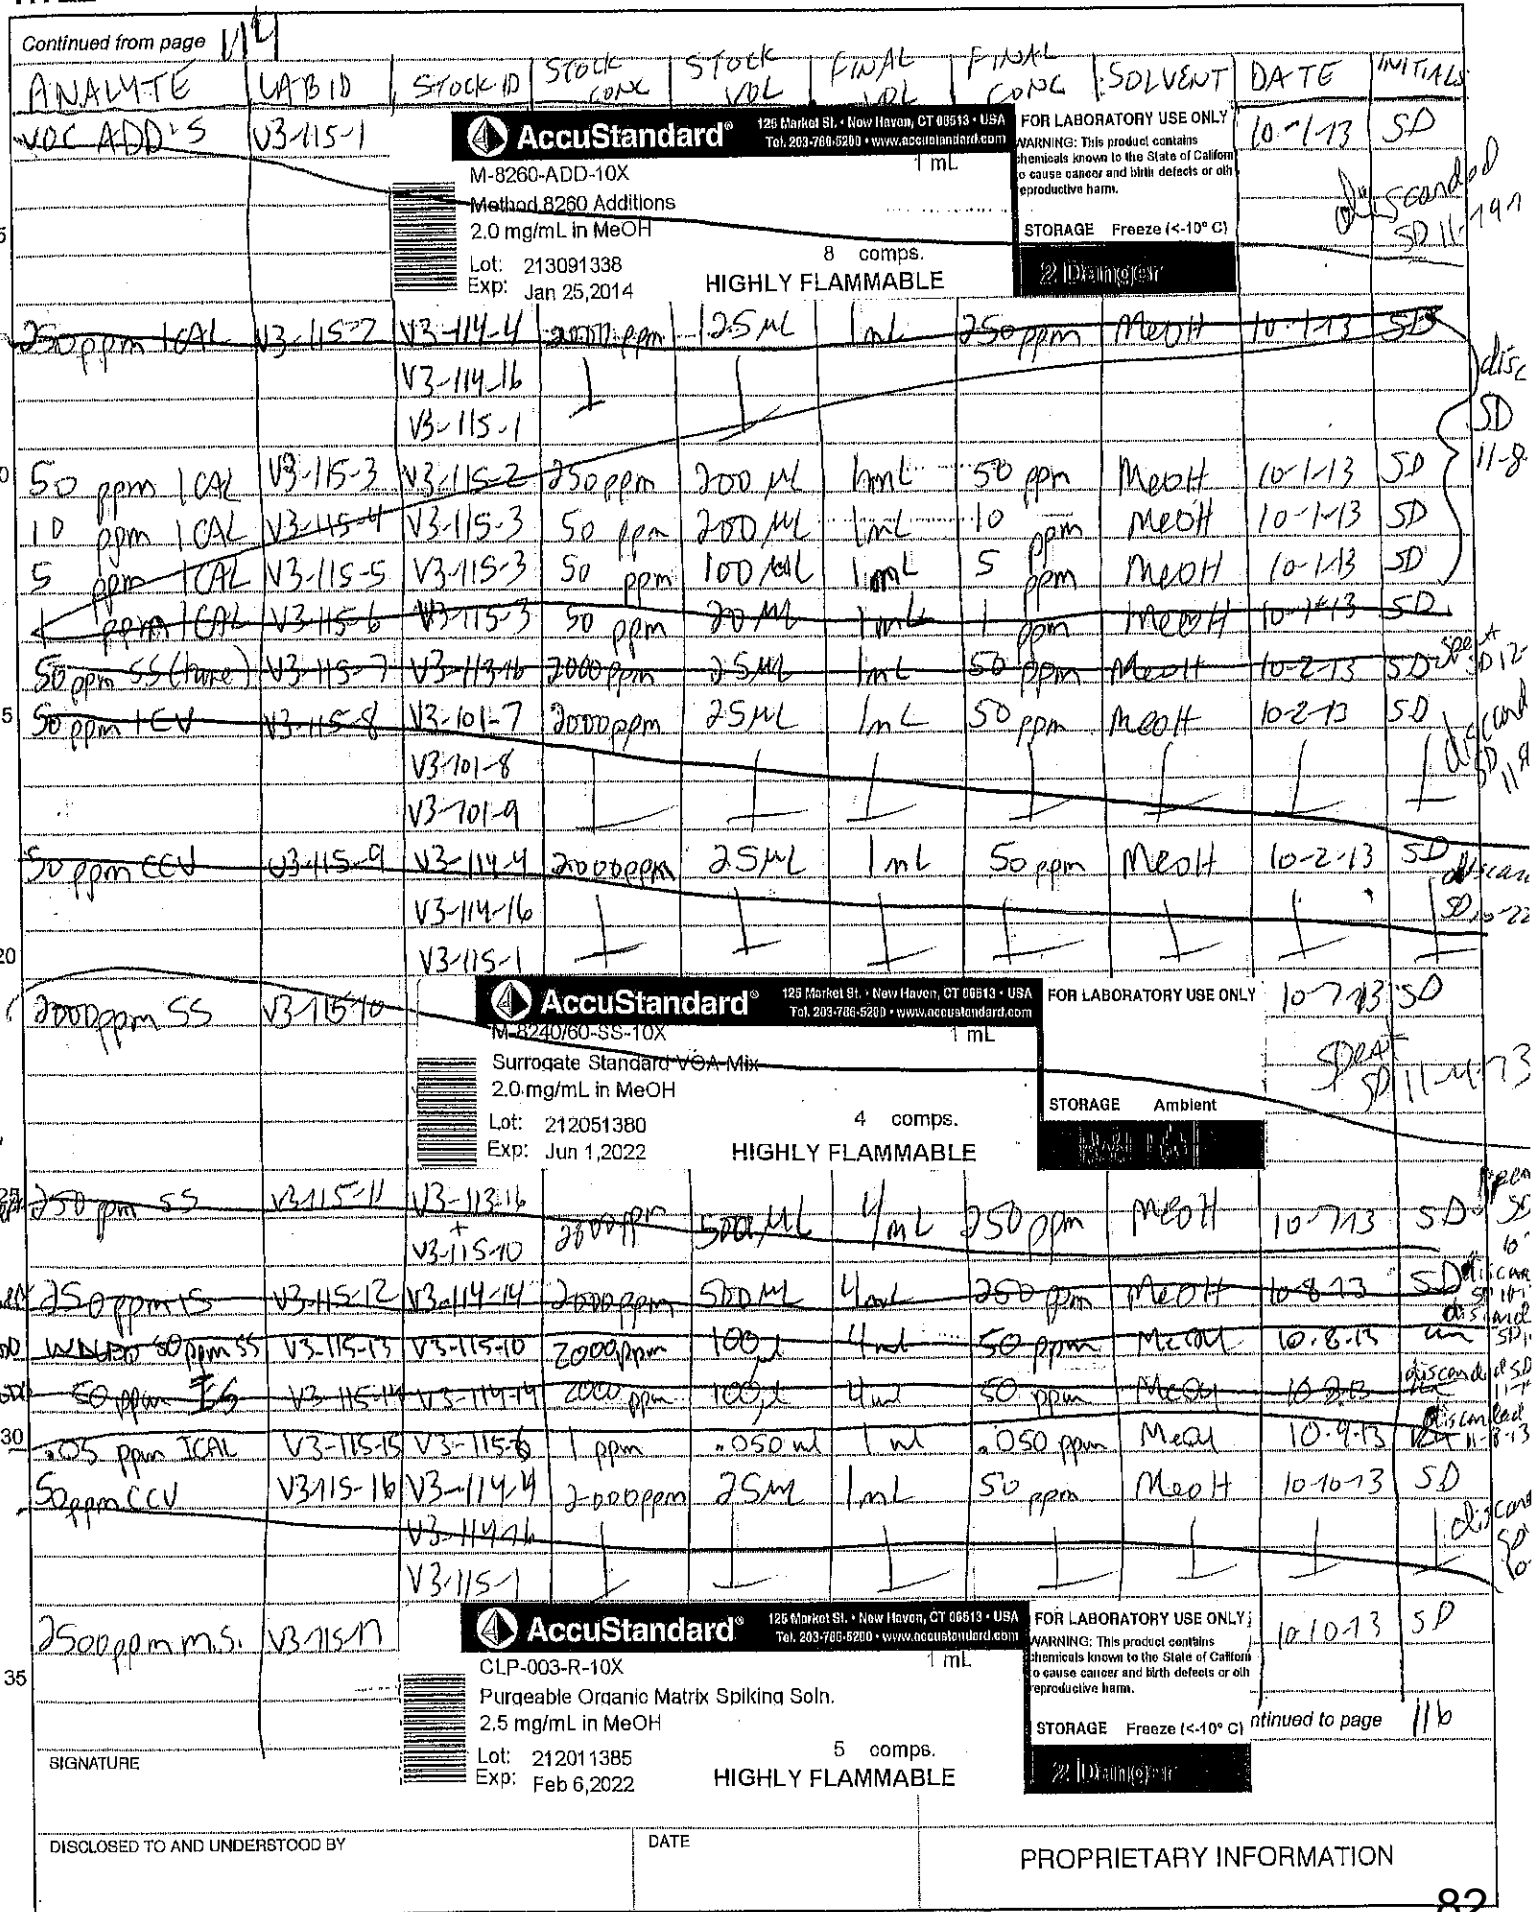 Continued from page 114
ANALYTE LAB ID STOCK ID STOCK CONC STOCK VOL FINAL VOL FINAL CONC SOLVENT DATE INITIALS
VOC ADD'S V3-115-1 10-1-13 SD
AccuStandard® 125 Market St. • New Haven, CT 06513 • USA
Tel. 203-786-5290 • www.accustandard.com
M-8260-ADD-10X 1 mL
Method 8260 Additions
2.0 mg/mL in MeOH
8 comps.
Lot: 213091338
Exp: Jan 25,2014 HIGHLY FLAMMABLE
FOR LABORATORY USE ONLY
WARNING: This product contains
chemicals known to the State of Californ
o cause cancer and birth defects or oth
eproductive harm.
STORAGE Freeze (<-10° C)
2 Danger
discarded
SD
5
250 ppm ICAL V3-115-2 V3-114-4 2000 ppm 125 µL 1 mL 250 ppm MeOH 10-1-13 SD
V3-114-16
V3-115-1
disc
SD
11-8
50 ppm ICAL V3-115-3 V3-115-2 250 ppm 200 µL 1 mL 50 ppm MeOH 10-1-13 SD
10 ppm ICAL V3-115-4 V3-115-3 50 ppm 200 µL 1 mL 10 ppm MeOH 10-1-13 SD
5 ppm ICAL V3-115-5 V3-115-3 50 ppm 100 µL 1 mL 5 ppm MeOH 10-1-13 SD
1 ppm ICAL V3-115-6 V3-115-3 50 ppm 20 µL 1 mL 1 ppm MeOH 10-1-13 SD
50 ppm SS (tune) V3-115-7 V3-113-16 2000 ppm 25 µL 1 mL 50 ppm MeOH 10-2-13 SD spent SD 12-
50 ppm ICV V3-115-8 V3-101-7 2000 ppm 25 µL 1 mL 50 ppm MeOH 10-2-13 SD discard SD
V3-101-8
V3-101-9
50 ppm CCV V3-115-9 V3-114-4 2000 ppm 25 µL 1 mL 50 ppm MeOH 10-2-13 SD discar
V3-114-16 SD 10-22
20
V3-115-1
2000 ppm SS V3-115-10 10-7-13 SD
AccuStandard® 125 Market St. • New Haven, CT 06513 • USA
Tel. 203-786-5290 • www.accustandard.com
M-8240/60-SS-10X 1 mL
Surrogate Standard VOA Mix
2.0 mg/mL in MeOH
4 comps.
Lot: 212051380
Exp: Jun 1,2022 HIGHLY FLAMMABLE
FOR LABORATORY USE ONLY
STORAGE Ambient
spent
SD 11-4-13
25
250 ppm SS V3-115-11 V3-113-16 + V3-115-10 2000 ppm 500 µL 4 mL 250 ppm MeOH 10-7-13 SD
250 ppm IS V3-115-12 V3-114-14 2000 ppm 500 µL 4 mL 250 ppm MeOH 10-8-13 SD
50 ppm SS V3-115-13 V3-115-10 2000 ppm 100 µl 4 ml 50 ppm MeOH 10-8-13
50 ppm IS V3-115-14 V3-114-14 2000 ppm 100 µl 4 ml 50 ppm MeOH 10-8-13 discarded SD
30
.05 ppm ICAL V3-115-15 V3-115-6 1 ppm .050 ml 1 ml .050 ppm MeOH 10-9-13 discarded 11-8-13
50 ppm CCV V3-115-16 V3-114-4 2000 ppm 25 µL 1 mL 50 ppm MeOH 10-10-13 SD
V3-114-16 discard
V3-115-1
2500 ppm m.s. V3-115-17 10-10-13 SD
AccuStandard® 125 Market St. • New Haven, CT 06513 • USA
Tel. 203-786-5290 • www.accustandard.com
CLP-003-R-10X 1 mL
Purgeable Organic Matrix Spiking Soln.
2.5 mg/mL in MeOH
5 comps.
Lot: 212011385
Exp: Feb 6,2022 HIGHLY FLAMMABLE
FOR LABORATORY USE ONLY
WARNING: This product contains
chemicals known to the State of Californi
o cause cancer and birth defects or oth
eproductive harm.
STORAGE Freeze (<-10° C)
2 Danger
35
ntinued to page 116
SIGNATURE
DISCLOSED TO AND UNDERSTOOD BY
DATE
PROPRIETARY INFORMATION
82